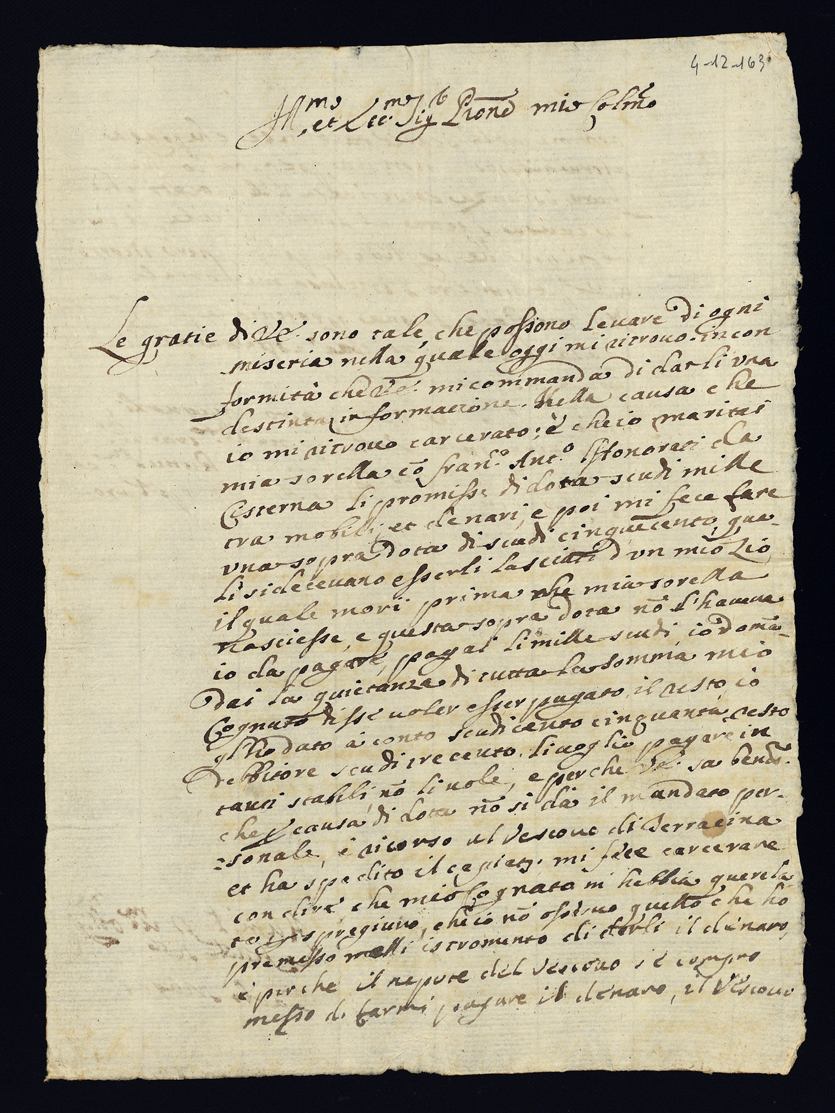 4-12-163
Ill.mo et Ecc.mo Sig.r Pròne mio Col.mo
Le gratie di V.E. sono tale, che possono levare di ogni
miseria nella quale oggi mi ritrovo. in con
formità che V.E. mi commanda di darli una
destinta informatione. Nella causa che
io mi ritrovo carcerato; è che io maritai
mia sorella cõ Fran.o Ant.o Honorati da
Cisterna li promisse di dota scudi mille
tra mobili, et denari, e poi mi fece fare
una sopra dota di scudi cinquecento, que-
li si dicevano esserli lasciati d un mio zio
il quale morì prima che mia sorella
nasciesse, e questa sopra dota nõ l'haveva
io da pagare, pagai li mille scudi, io domã-
dai la quietanza di tutta la somma mio
Cognato disse voler esser pagato il resto, io
gl'ho dato à conto scudi cento cinquanta, resto
debbitore scudi trecento, li voglio pagare in
tanti stabili nõ li vole, e perche V.E. sa
che p causa di dota nõ si dà il mandato per-
sonale, è ricorso al Vescovo di Terracina
et ha spedito il mi fece carcerare
con dire, che mio Cognato m'hebbia querela
to spregiuro, che io nõ osservo quello che ho
premesso nelli istromento di darli il denaro,
è perche il nepote del Vescovo s'è compro
messo di farmi pagare il denaro, il Vescovo